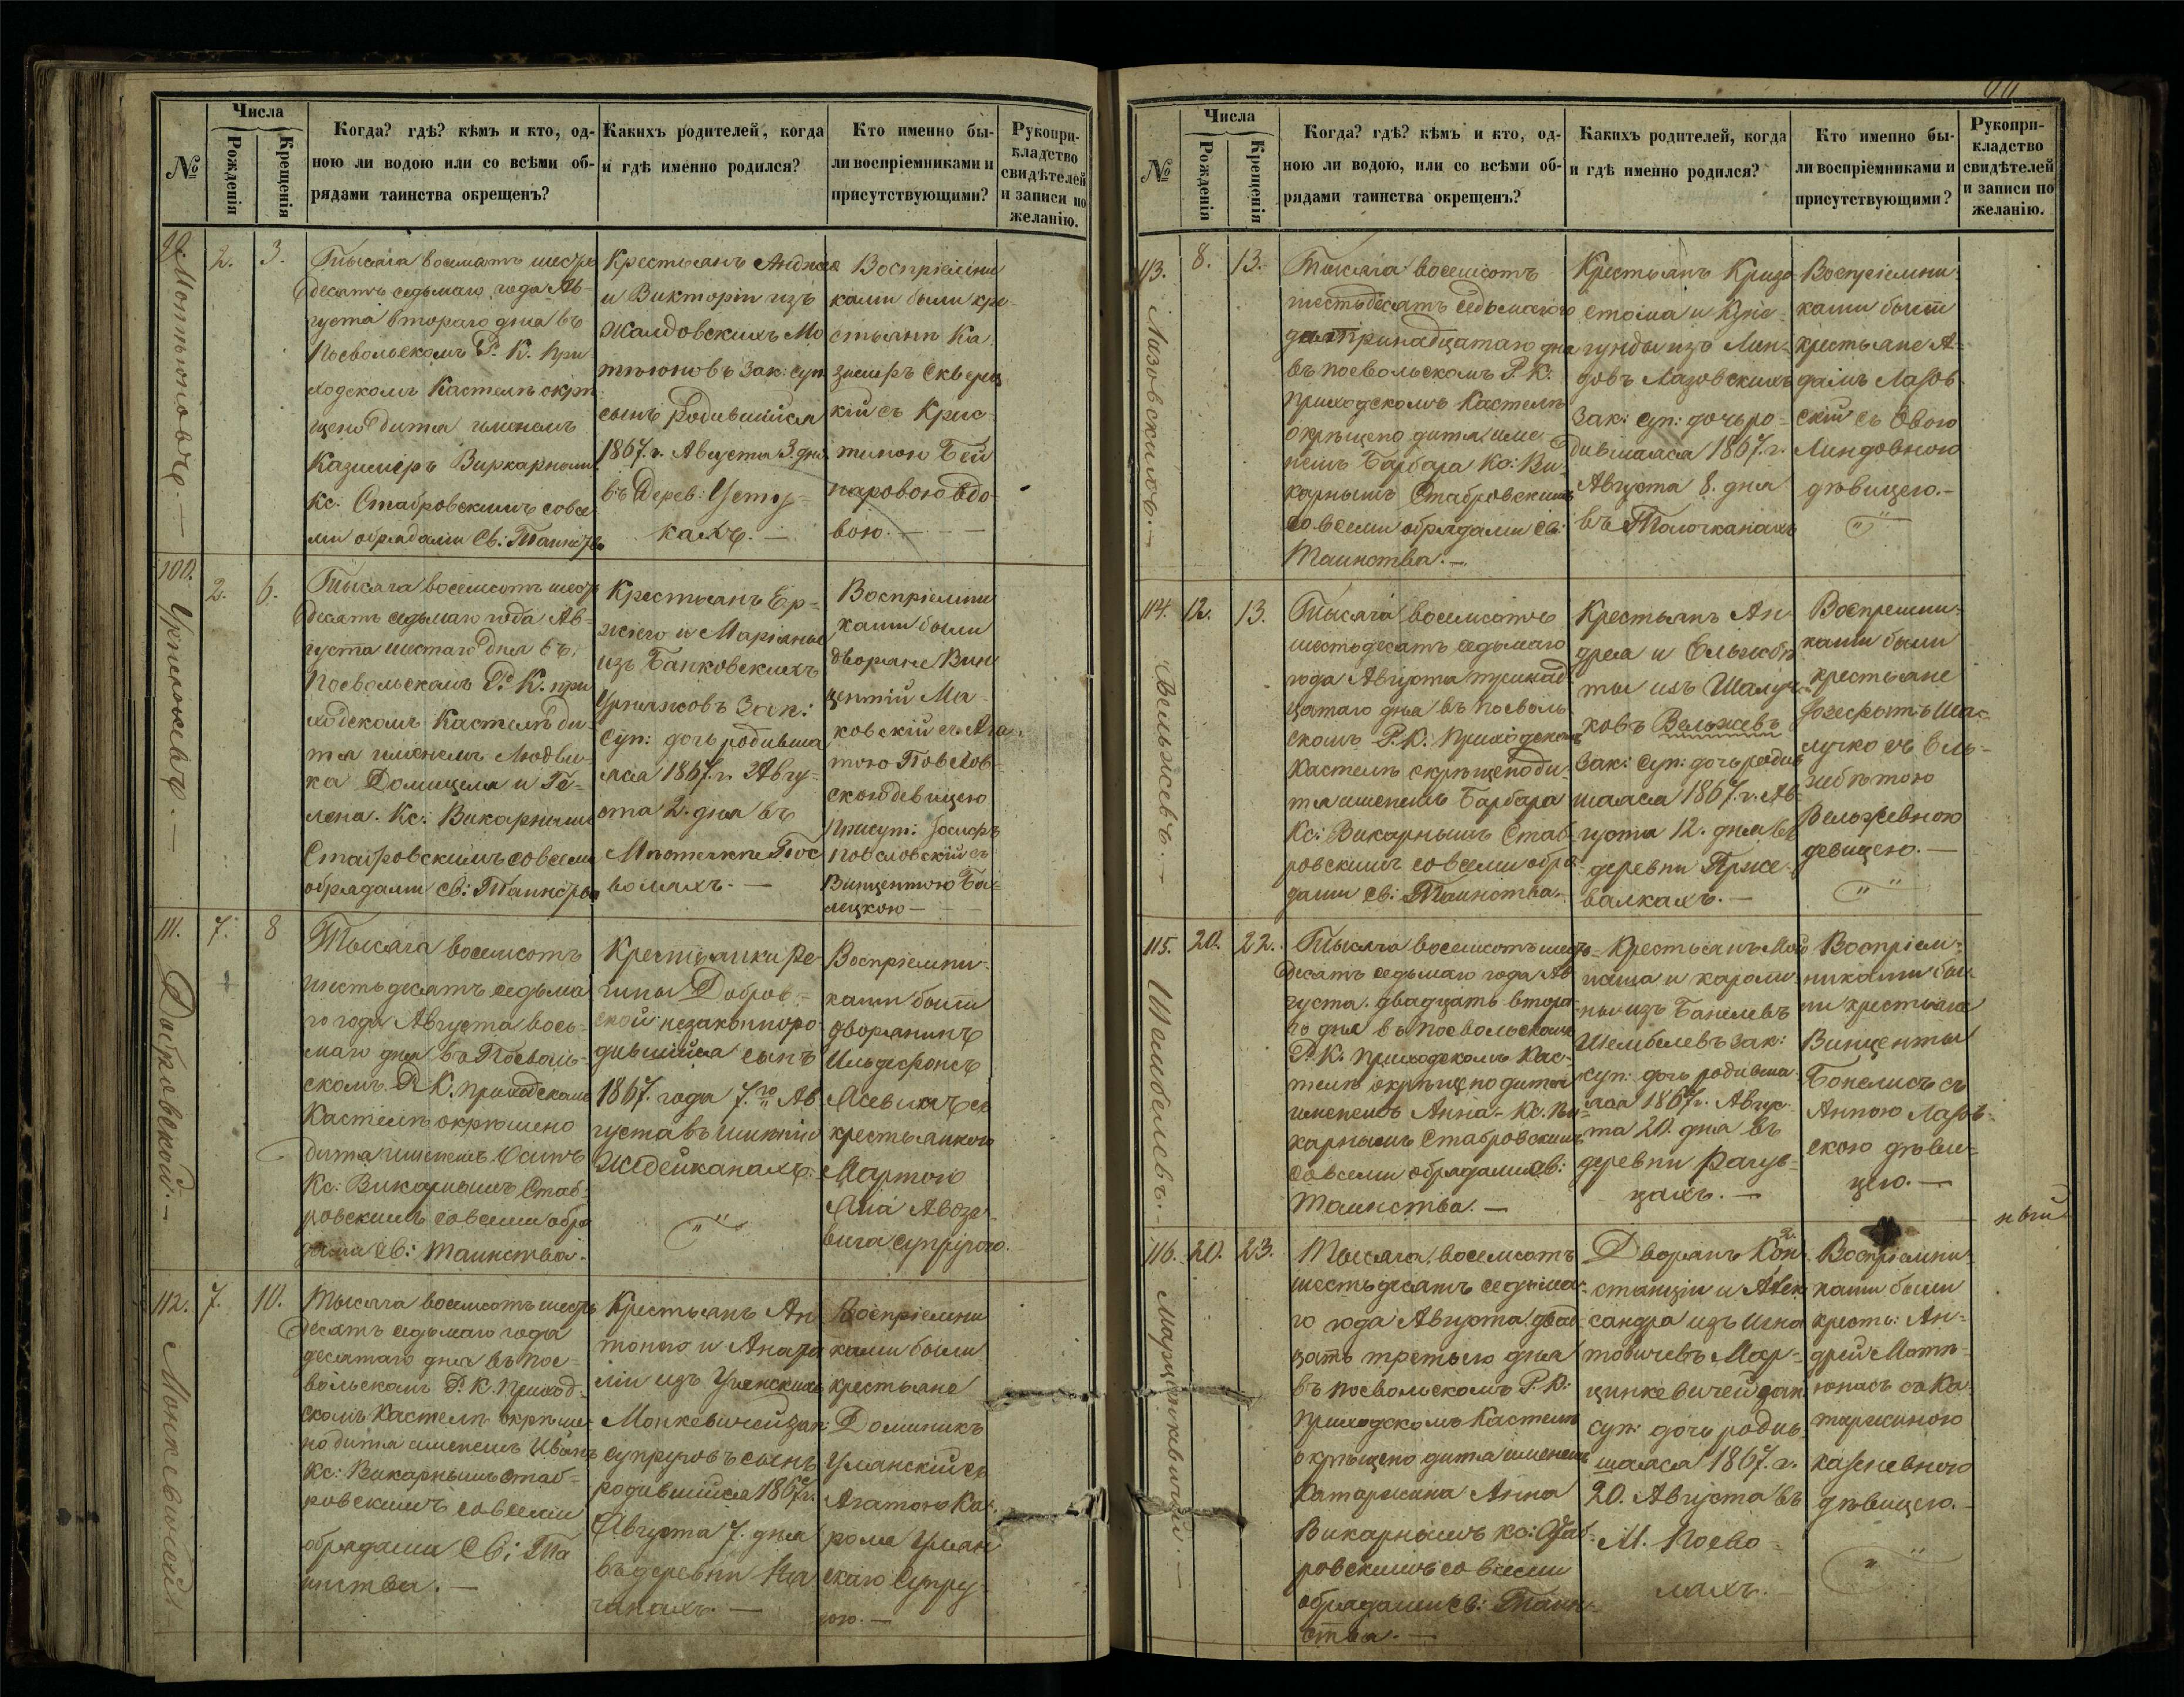 №
Числа
Рожденія
Крещенія
Когда? гдѣ? кѣмъ и кто, од-
ною ли водою или со всѣми об-
рядами таинства окрещенъ?
Какихъ родителей, когда
и гдѣ именно родился?
Кто именно бы-
ли воспріемниками и
присутствующими?
Рукопри-
кладство
свидѣтелей
и записи по
желанію.
2.
3.
Тысяча восемьсотъ шесть
десятъ седьмаго года Ав-
густа втораго дня въ
Поевольскомъ Р. К. при
ходскомъ Костелѣ окрѣ
щено дитя именемъ
Казимиръ Викарнымъ
Кс. Стабровскимъ совсе
ми обрядами Св: Таинства
Крестьянъ Андрея
и Викторіи изъ
Жалдовскихъ Мо
тюновъ Зак: суп
сынъ родившійся
1867. г. Августа 3. дня
въ Дерев:
кахъ. —
Воспріемни
ками были кре-
стьяне Ка
зимиръ Скверец
кій съ Крис-
тиною Бей
наровою вдо-
вою. —
100.
2.
6.
Тысяча восемсотъ шесть
десятъ седьмаго года Ав-
густа шестаго дня въ
Поевольскомъ Р. К. при
ходскомъ Костелѣ ди-
тя именемъ Людви-
ка Домицеля и Ге-
лена. Кс: Викарнымъ
Стабровскимъ совсеми
обрядами Св: Таинства
Крестьянъ Ер-
жіего и Маріянны
изъ Банковскихъ
Урнляжовъ Зак:
Суп: дочь родивша
яся 1867. г. Авгу-
ста 2. дня въ
Мѣстечкѣ Пос
воляхъ. —
Воспріемни
ками были
дворяне Вин
центій Ма-
ковскій съ Ага
тою Повілов-
скою девицею
Присут: Іосифъ
Повіловскій съ
Винцентою Ба-
лецкою —
111.
7.
8
Тысяча восемсотъ
шестьдесятъ седьма
го года Августа вось-
маго дня въ Поеволь-
скомъ Р. К. приходскомъ
Костелѣ окрѣщено
дитя именемъ Осипъ
Кс: Викарнымъ Стаб-
ровскимъ совсеми обря
дами Св: Таинства.
Крестьянки Ре-
гины Добров-
ской незаконноро
дившійся сынъ
1867. года 7.го Ав
густа въ имѣніи
Ждейканахъ.
Воспріемни-
ками были
дворянинъ
Ильдефонсъ
съ
крестьянкою
Мартою
112.
7.
10.
Тысяча восемсотъ шесть
десятъ седьмаго года
десятаго дня въ Пое-
вольскомъ Р. К. приход-
скомъ Костелѣ окрѣще-
но дитя именемъ Иванъ
Кс: Викарнымъ Стаб-
ровскимъ совсеми
обрядами Св: Та
инства. —
Крестьянъ Ан
тонаго и Анаста
ліи изъ Уманскихъ
Монкевичей Зак:
супруговъ сынъ
родившійся 1867 г.
Августа 7. дня
въ деревни На
Воспріемни
ками были
крестьяне
Доминикъ
Уманскій съ
Агатою Ка-
рола Уман
скаго Супру-
гою. —
Монкевичей
№
Числа
Рожденія
Крещенія
Когда? гдѣ? кѣмъ и кто, од-
ною ли водою, или со всѣми об-
рядами таинства окрещенъ?
Какихъ родителей, когда
и гдѣ именно родился?
Кто именно бы-
ли воспріемниками и
присутствующими?
Рукопри-
кладство
свидѣтелей
и записи по
желанію.
113.
Лазовскихъ. —
8.
13.
Тысяча восемсотъ
шестьдесятъ седьмаго го
да тринадцатаго дня
въ Поевольскомъ Р. К.
приходскомъ Костелѣ
окрѣщено дитя име-
немъ Барбара Кс: Ви-
карнымъ Стабровскимъ
со всеми обрядами Св:
Таинства. —
Крестьянъ Кризо-
стома и Куне-
гунды изъ Лин-
довъ Лазовскихъ
Зак: Суп: дочь ро-
дившаяся 1867. г.
Августа 8. дня
въ Толочканахъ
Воспріемни
ками были
крестьяне А-
дамъ Лазов
скій съ Евою
Линдовною
дѣвицею. —
114.
Вельжевъ. —
12.
13.
Тысяча восемсотъ
шестьдесятъ седьмаго
года Августа тринад
цатаго дня въ Поеволь
скомъ Р. К. Приходскомъ
Костелѣ окрѣщено ди-
тя именемъ Барбара
Кс: Викарнымъ Стаб-
ровскимъ совсеми обря-
дами Св: Таинства. —
Крестьянъ Ан-
дрея и Ельжбѣ
ты изъ Шалуч-
ковъ Вельжевъ
Зак: Суп: дочь родив
шаяся 1867. г. Ав-
густа 12. дня въ
деревни Прже-
валкахъ. —
Воспреемни-
ками были
крестьяне
Іозефатъ Ша-
лучко съ Ель-
жбѣтою
Вельжевною
девицею. —
115.
Шомбелевъ. —
20.
22.
Тысяча восемсотъ шесть-
десятъ седьмаго года Ав
густа двадцать втора-
го дня въ Поевольскомъ
Р. К. Приходскомъ Кос-
телѣ окрѣщено дитя
именемъ Анна. Кс. Ви-
карнымъ Стабровскимъ
Совсеми обрядами Св:
Таинства. —
Крестьянъ
и Кароли-
ны изъ Банелевъ
Шембелевъ Зак:
суп: дочь родивша
яся 1867 г. Авгус-
та 20. дня въ
деревни Рагув-
цахъ. —
Воспріем-
никами бы-
ли крестьяне
Винценты
Бонелисъ съ
Анною Лазов-
скою дѣви-
цею. —
116.
Марцинкевичей. —
20.
23.
Тысяча восемсотъ
шестьдесятъ седьма-
го года Августа двад-
цать третьего дня
въ Поевольскомъ Р. К:
Приходскомъ Костелѣ
окрѣщено дитя именемъ
Катаржина Анна
Викарнымъ Кс: Стаб-
ровскимъ со всеми
обрядами Св: Таин-
ства. —
Дворянъ Кон-
станціи и Алек
сандра изъ Игна
товичевъ Мар-
цинкевичей Зак
суп: дочь родив-
шаяся 1867. г.
20. Августа въ
М. Поево-
ляхъ. —
Воспріемни
ками были
кресть: Ан-
дрей Мотѣ-
юнасъ съ Ка-
таржиною
дѣвицею. —